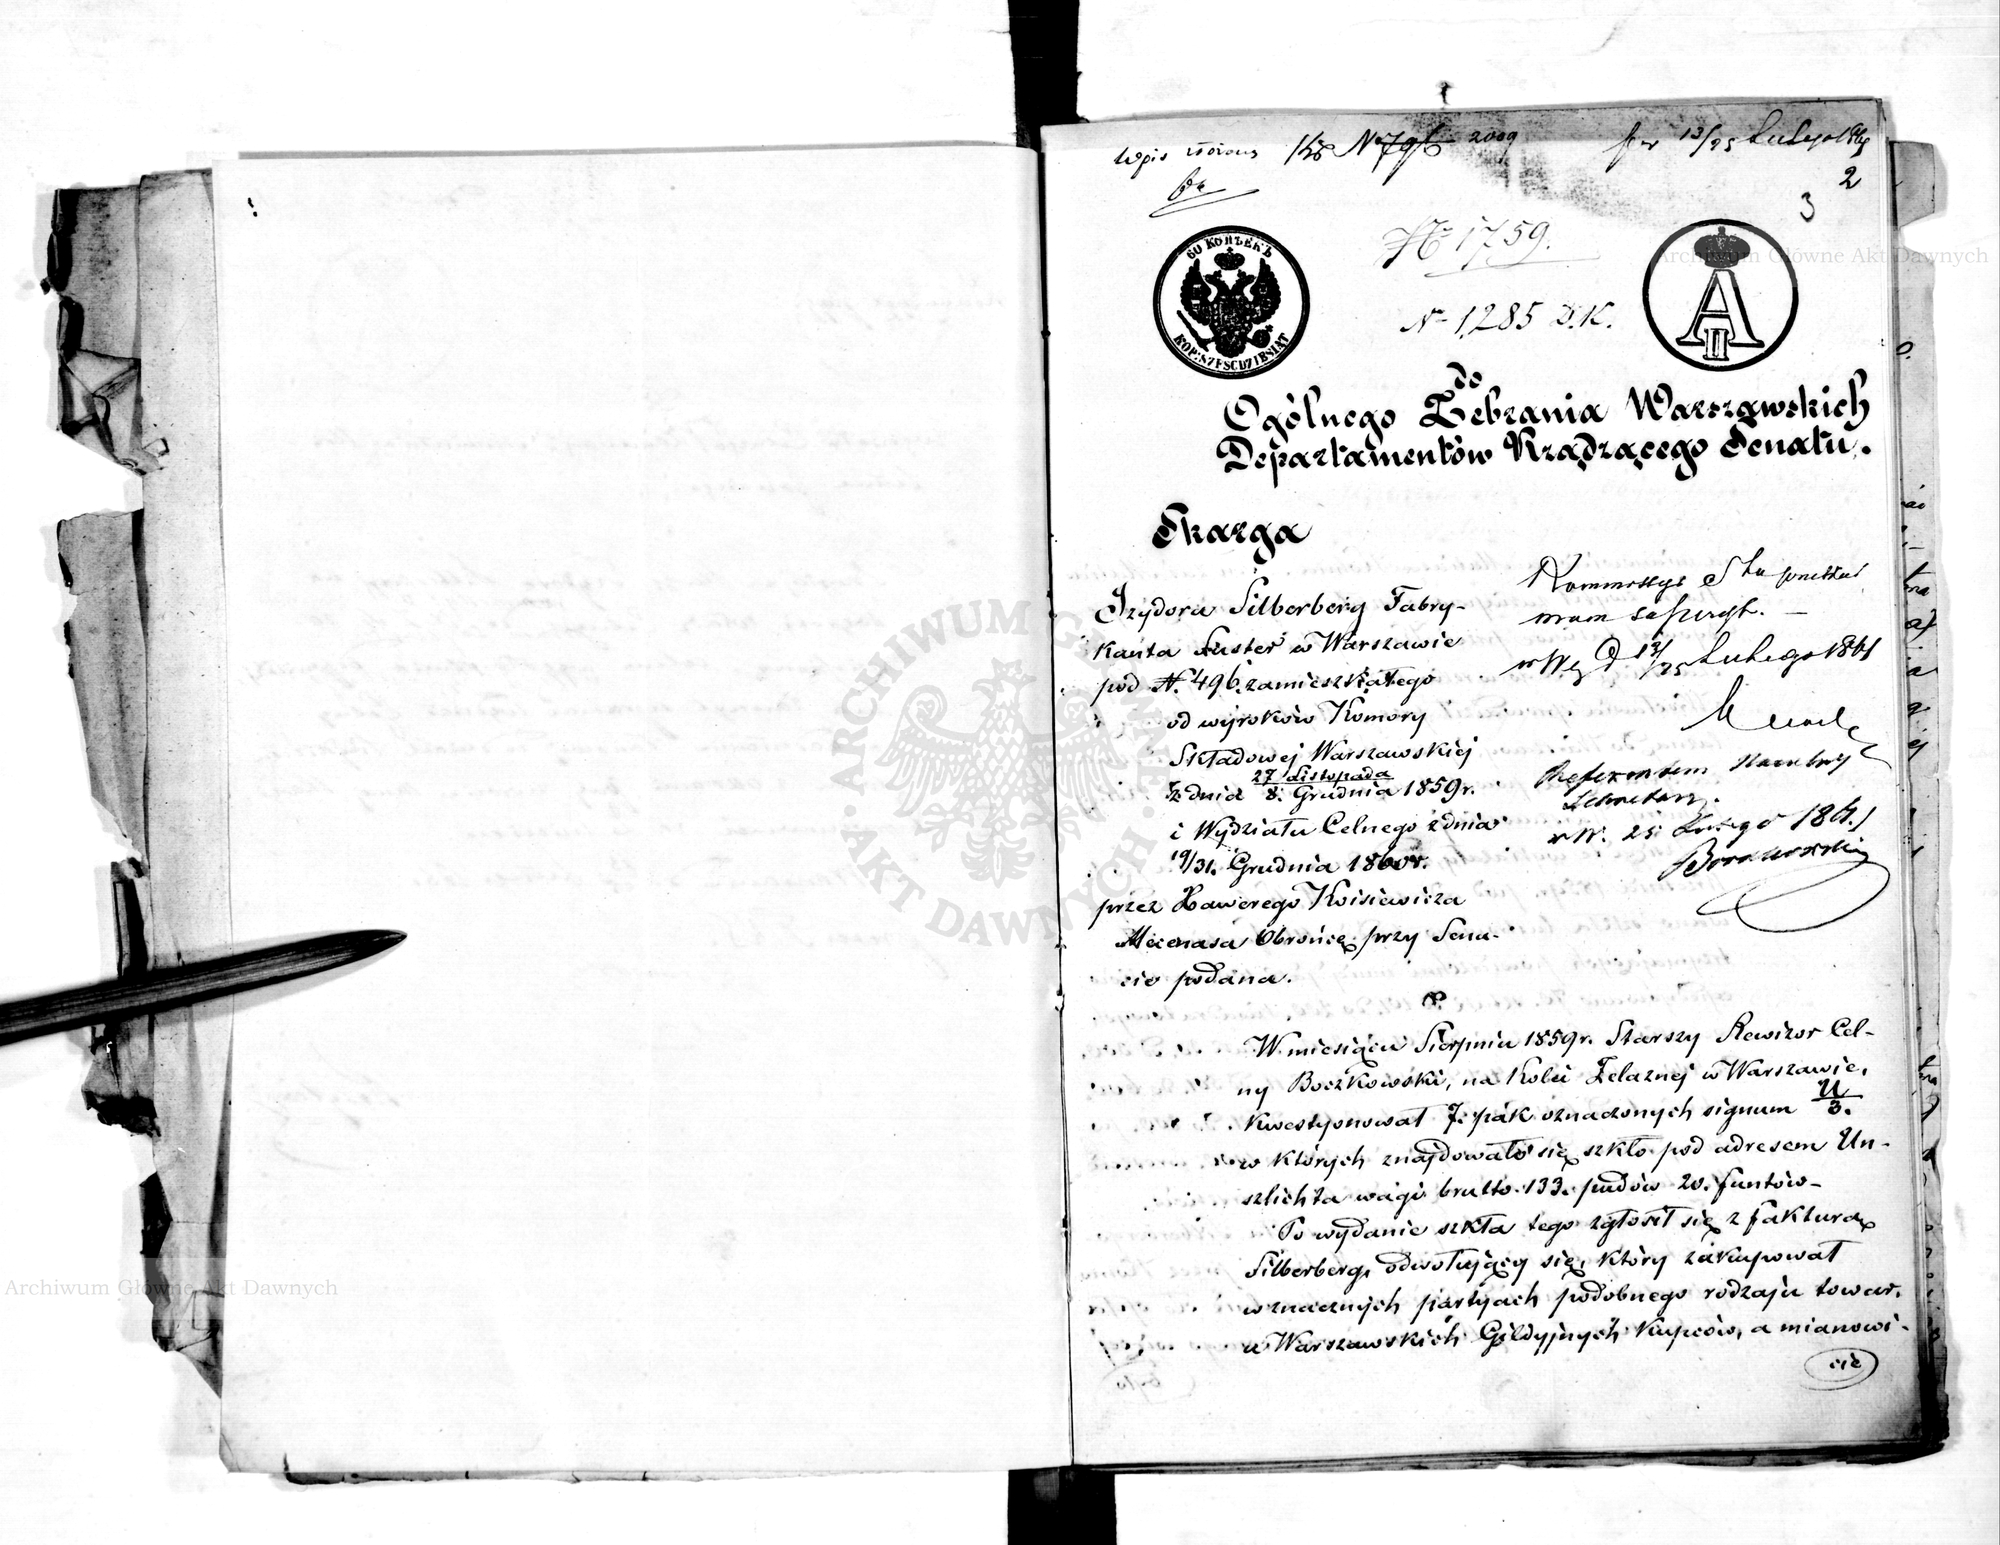 Wpis złożony
2009
13/25 Lutego 1861
2
3
60 КОПѢЕКЪ
KOP: SZESCDZIESIĄT
A II
№ 1759.
№ 1285 D.K.
do
Ogólnego Zebrania Warszawskich
Departamentów Rządzącego Senatu.
Skarga
Izydora Silberberg Fabry-
kanta Luster w Warszawie
pod N. 496. zamieszkałego
od wyroków Komory
Składowej Warszawskiej
z dnia 27 Listopada / 8. Grudnia 1859r.
i Wydziału Celnego z dnia
19/31. Grudnia 1860r.
przez Xawerego Koisiewicza
Mecenasa Obrońcę przy Sena-
cie podana.
13/25 Lutego 1861
Referentem
Sekretarz.
w W. 25 Lutego 1861
W miesiącu Sierpniu 1859r. Starszy Rewizor Cel-
ny Boczkowski, na Kolei Żelaznej w Warszawie,
kwestyonował 7. pak oznaczonych signum U/3.
w których znajdowało się szkło pod adresem Un-
szlichta wagi brutto 133. pudów 20. funtów-
Po wydanie szkła tego zgłosił się z fakturą
Silberberg, odwołujący się, który zakupował
w znacznych partyach podobnego rodzaju towar.
u Warszawskich Gildyjnych Kupców, a mianowi-
cie
Archiwum Główne Akt Dawnych
Archiwum Główne Akt Dawnych
ARCHIWUM GŁÓWNE AKT DAWNYCH